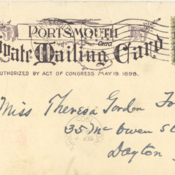 PORTSMOUTH
OHIO
ivate Mailing Card
AUTHORIZED BY ACT OF CONGRESS MAY 19, 1898.
Miss Theresa Gordon
35 Mc Owen St
Dayton